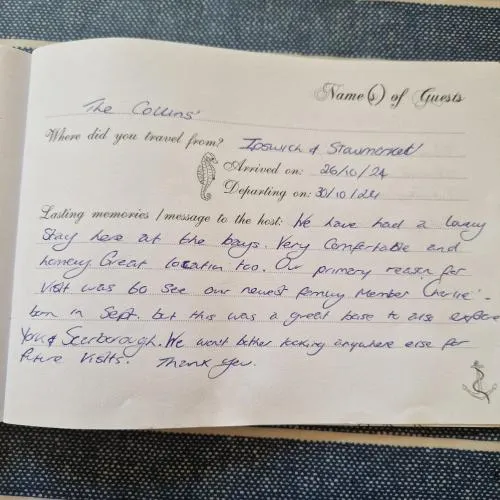 Name(s) of Guests
The Collins'
Where did you travel from? Ipswich & Stowmarket
Arrived on: 26/10/24
Departing on: 30/10/24
Lasting memories / message to the host: We have had a lovely
Stay here at the bays. Very Comfortable and
homely. Great location too. Our primary reason for
visit was to see our newest family Member Charlie -
born in Sept. but this was a great base to also explore
York & Scarborough. We wont bother looking anywhere else for
future visits. Thank you.